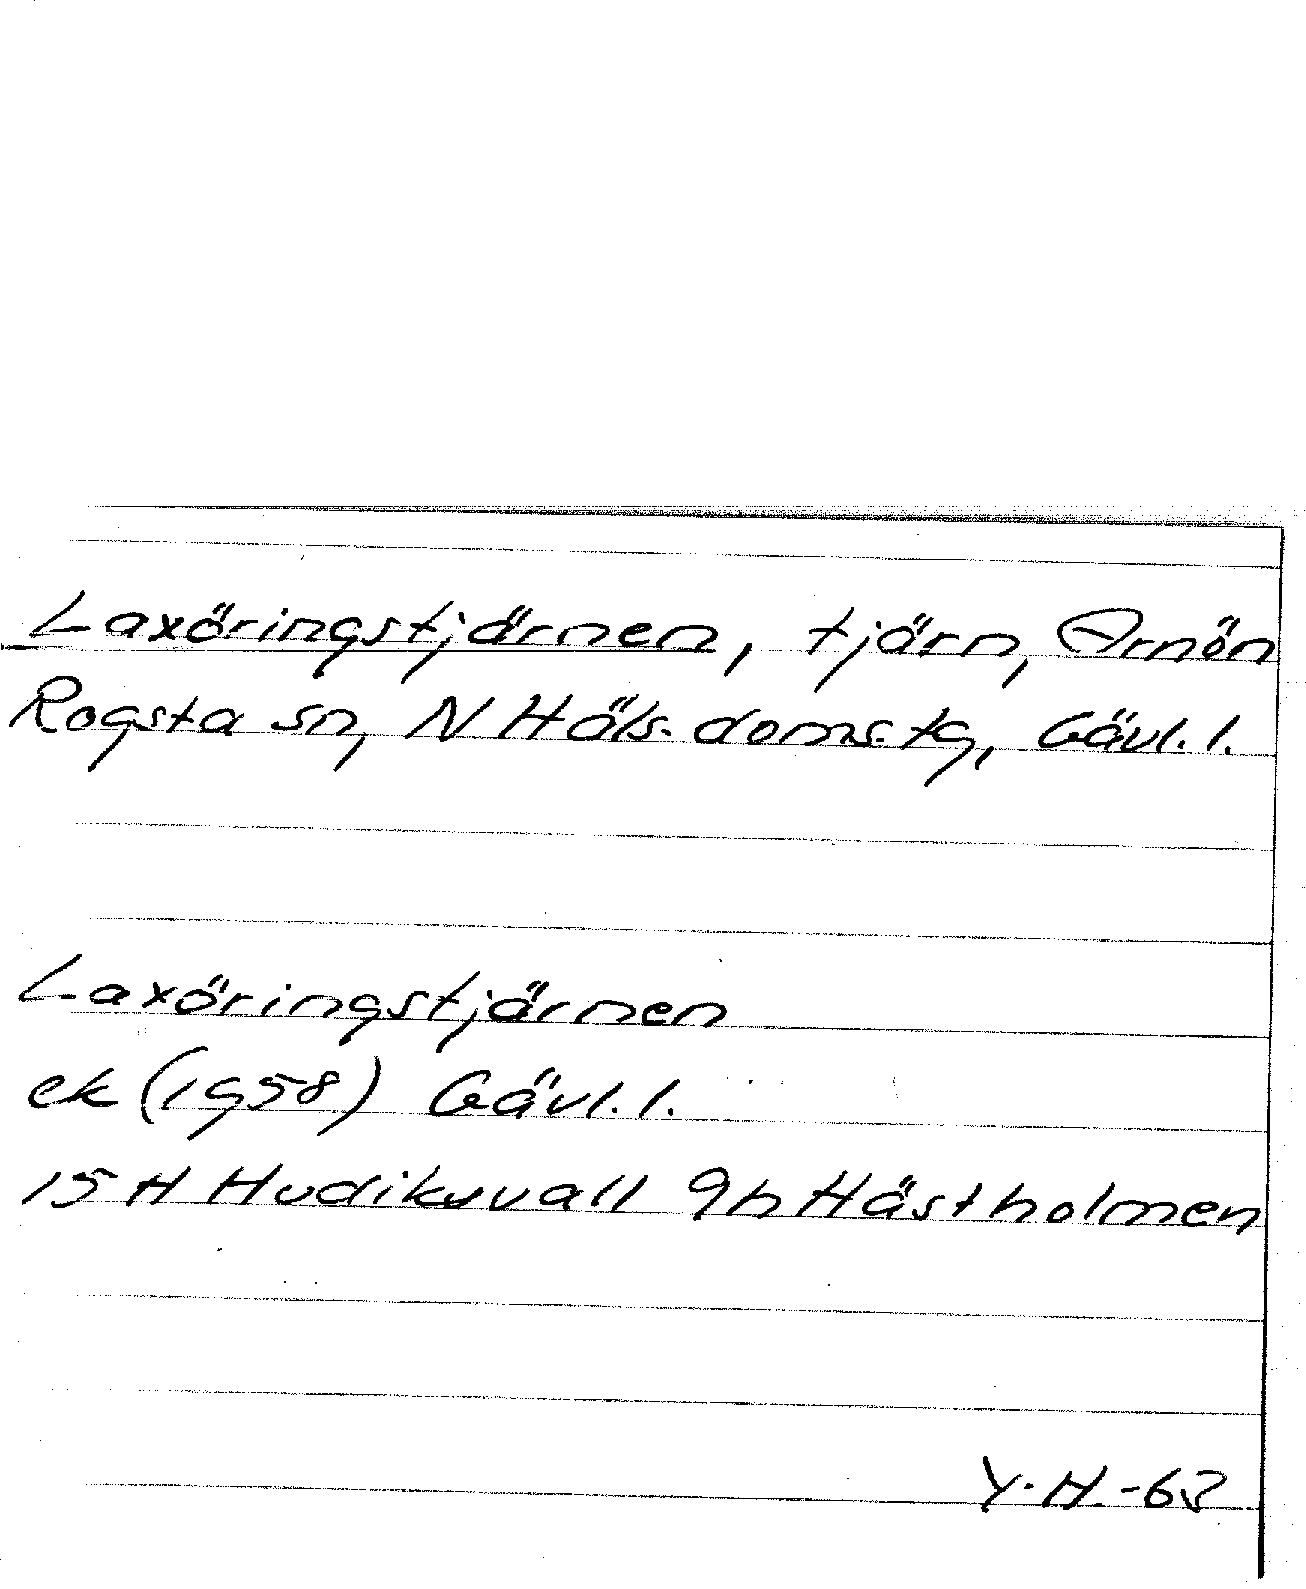 Laxöringstjärnen, tjärn, Arnön
Rogsta sn, N Häls. doms.tg, Gävl. l.
Laxöringstjärnen
ek (1958) Gävl. l.
15 H Hudiksvall 9h Hästholmen
Y. H. -62